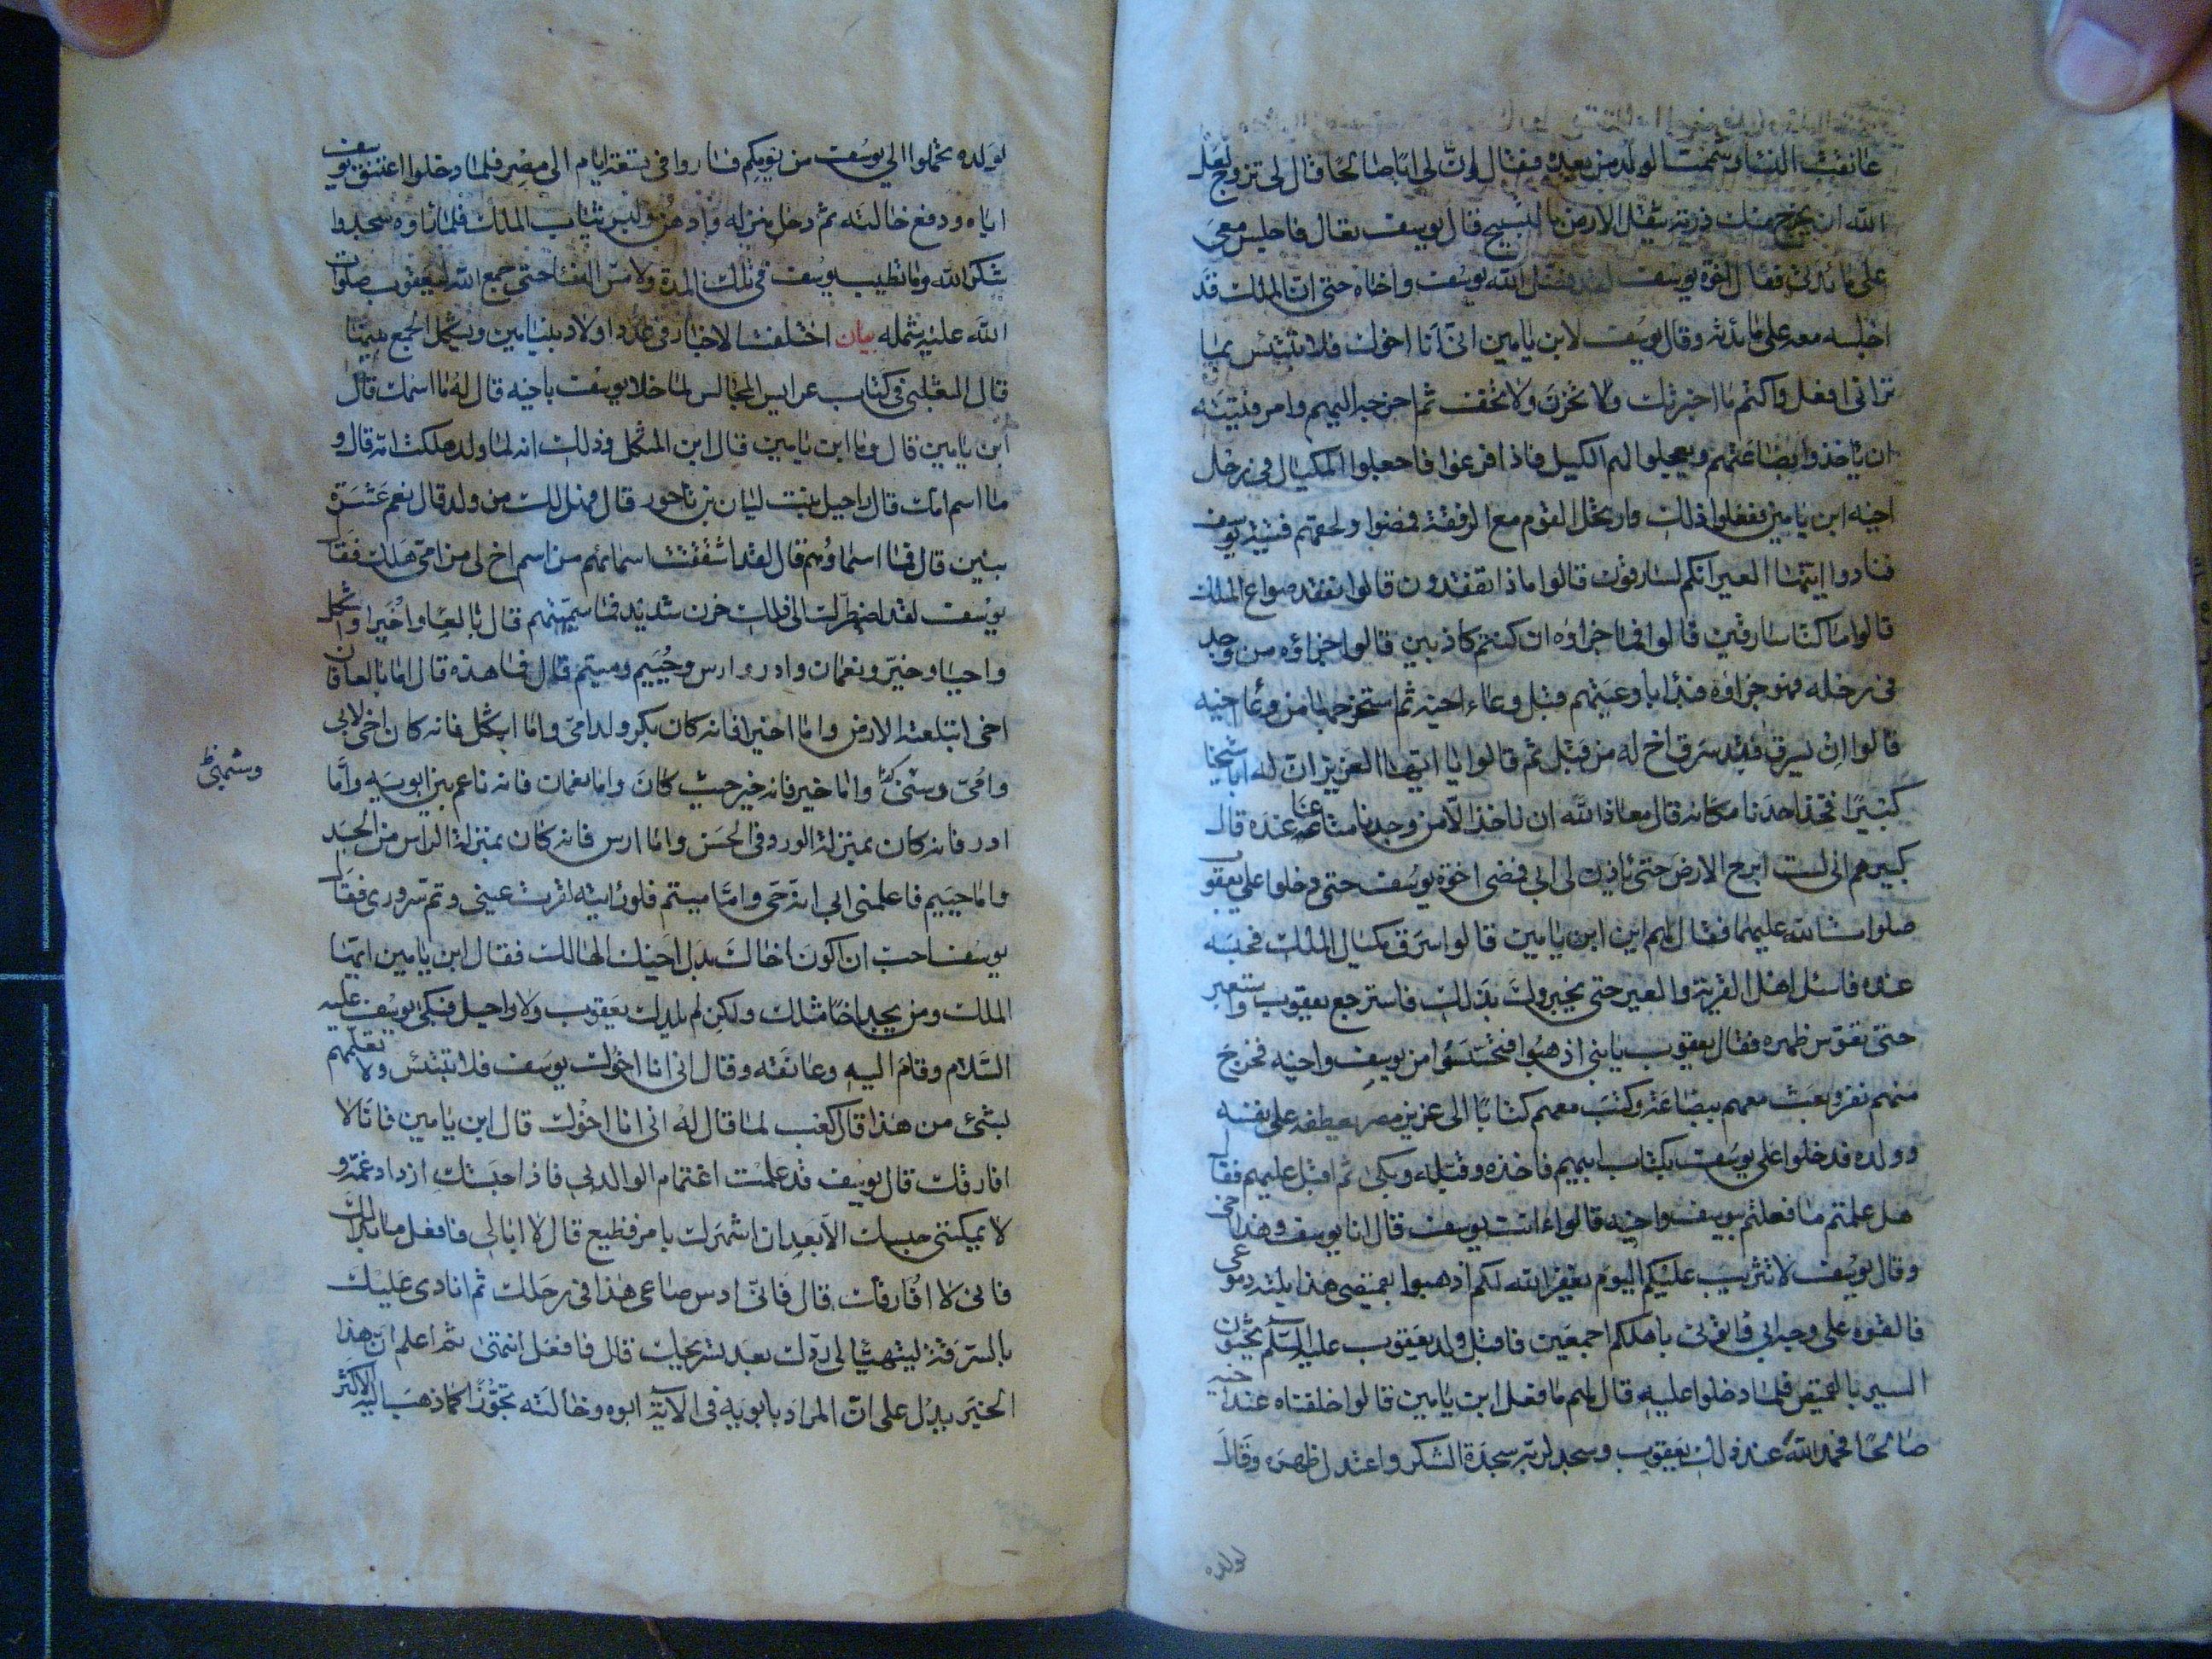 عانقت النساء وشممت الولد من بعده فقال ان لي ابا صالحا قال لي تزوج لعل
الله ان يخرج منك ذرية يثقل الارض بالتسبيح قال يوسف تعال فاجلس معي
على مائدتي فقال اخوة يوسف لقد فضل الله يوسف واخاه حتى ان الملك قد
اجلسه معه على مائدته وقال يوسف لابن يامين اني انا اخوك فلا تبتئس بما
تراني افعل واكتم ما اخبرتك ولا تحزن ولا تخف ثم اخرجه اليهم وامر فتيته
ان ياخذوا بضاعتهم ويعجلوا لهم الكيل فاذا فرغوا فاجعلوا المكيال في رحل
اخيه ابن يامين ففعلوا ذلك وارتحل القوم مع الرفقة فمضوا ولحقهم فتية يوسف
فنادوا ايتها العير انكم لسارقون قالوا ماذا تفقدون قالوا نفقد صواع الملك
قالوا ما كنا سارقين قالوا فما جزاؤه ان كنتم كاذبين قالوا جزاؤه من وجد
في رحله فهو جزاؤه فبدا باوعيتهم قبل وعاء اخيه ثم استخرجها من وعاء اخيه
قالوا ان يسرق فقد سرق اخ له من قبل ثم قالوا يا ايها العزيز ان له ابا شيخا
كبيرا فخذ احدنا مكانه قال معاذ الله ان ناخذ الا من وجدنا متاعنا عنده قال
كبيرهم اني لست ابرح الارض حتى ياذن لي ابي فمضى اخوة يوسف حتى دخلوا على يعقوب
صلوات الله عليهما فقال لهم اين ابن يامين قالوا سرق مكيال الملك فحبسه
عنده فاسئل اهل القرية والعير حتى يخبروك بذلك فاسترجع يعقوب واستعبر
حتى تقوس ظهره فقال يعقوب يا بني اذهبوا فتحسسوا من يوسف واخيه فخرج
منهم نفر وبعث معهم ببضاعة وكتب معهم كتابا الى عزيز مصر يعطفه على نفسه
وولده فدخلوا على يوسف بكتاب ابيهم فاخذه وقبله وبكى ثم اقبل عليهم فقال
هل علمتم ما فعلتم بيوسف واخيه قالوا ءانت يوسف قال انا يوسف وهذا اخي
وقال يوسف لا تثريب عليكم اليوم يغفر الله لكم اذهبوا بقميصي هذا بلته دموعي
فالقوه على وجه ابي واتوني باهلكم اجمعين فاقبل ولد يعقوب عليه السلم يحثون
السير بالقميص فلما دخلوا عليه قال لهم ما فعل ابن يامين قالوا خلفناه عند اخيه
صالحا فحمد الله عند ذلك يعقوب وسجد لربه سجدة الشكر واعتدل ظهره وقال
لولده
لولده تحملوا الى يوسف من يومكم فساروا في تسعة ايام الى مصر فلما دخلوا اعتنق يوسف
اباه ورفع خالته ثم دخل منزله وادهن ولبس ثياب الملك فلما راوه سجدوا
شكرا لله وما تطيب يوسف في تلك المدة ولا مس النساء حتى جمع الله ليعقوب صلوات
الله عليه شمله بيان اختلف الاخبار في عدد اولاد بنيامين ويشكل الجمع بينها
قال الثعلبي في كتاب عرايس المجالس لما خلا يوسف باخيه قال له ما اسمك قال
ابن يامين قال وما ابن يامين قال ابن المثكل وذلك انه لما ولد هلكت امه قال و
ما اسم امك قال راحيل بنت ليان بن ناحور قال فهل لك من ولد قال نعم عشرة
بنين قال فما اسماؤهم قال لقد اشتققت اسمائهم من اسم اخ لي من امي هلك فقال
يوسف لقد اضطرك الى ذلك حزن شديد فما سميتهم قال بالعا واخيرا واشكل
واحيا وخير ونعمان وادر وارس وحييم وميتم قال فما هذه قال اما بالعا فان
اخي ابتلعته الارض واما اخيرا فانه كان بكر ولد امي واما اشكل فانه كان اخي لابي
وامي وسني واما خير فانه خير حيث كان واما نعمان فانه ناعم بين ابويه واما
وسمني
ادر فانه كان بمنزلة الورد في الحسن واما ارس فانه كان بمنزلة الراس من الجسد
واما حييم فاعلمني ابي انه حي واما ميتم فلو رايته لقرت عيني وتم سروري فقال
يوسف احب ان اكون اخاك بدل اخيك الهالك فقال ابن يامين ايها
الملك ومن يجد اخا مثلك ولكن لم يلدك يعقوب ولا راحيل فبكى يوسف عليه
السلام وقام اليه وعانقه وقال اني انا اخوك يوسف فلا تبتئس ولا تعلمهم
بشئ من هذا قال كعب لما قال له اني انا اخوك قال ابن يامين فانا لا
افارقك قال يوسف قد علمت اغتمام الوالد بي فاذا حبستك ازداد غمه و
لا يمكنني حبسك الا بعد ان اشهرك بامر فظيع قال لا ابالي فافعل ما بدا لك
فاني لا افارقك قال فاني ادس صاعي هذا في رحلك ثم انادي عليك
بالسرقة ليتهيا لي ردك بعد تسريحك قال فافعل انتهى ثم اعلم ان هذا
الخبر يدل على ان المراد بابويه في الآية ابوه وخالته تجوزا كما ذهب اليه الاكثر